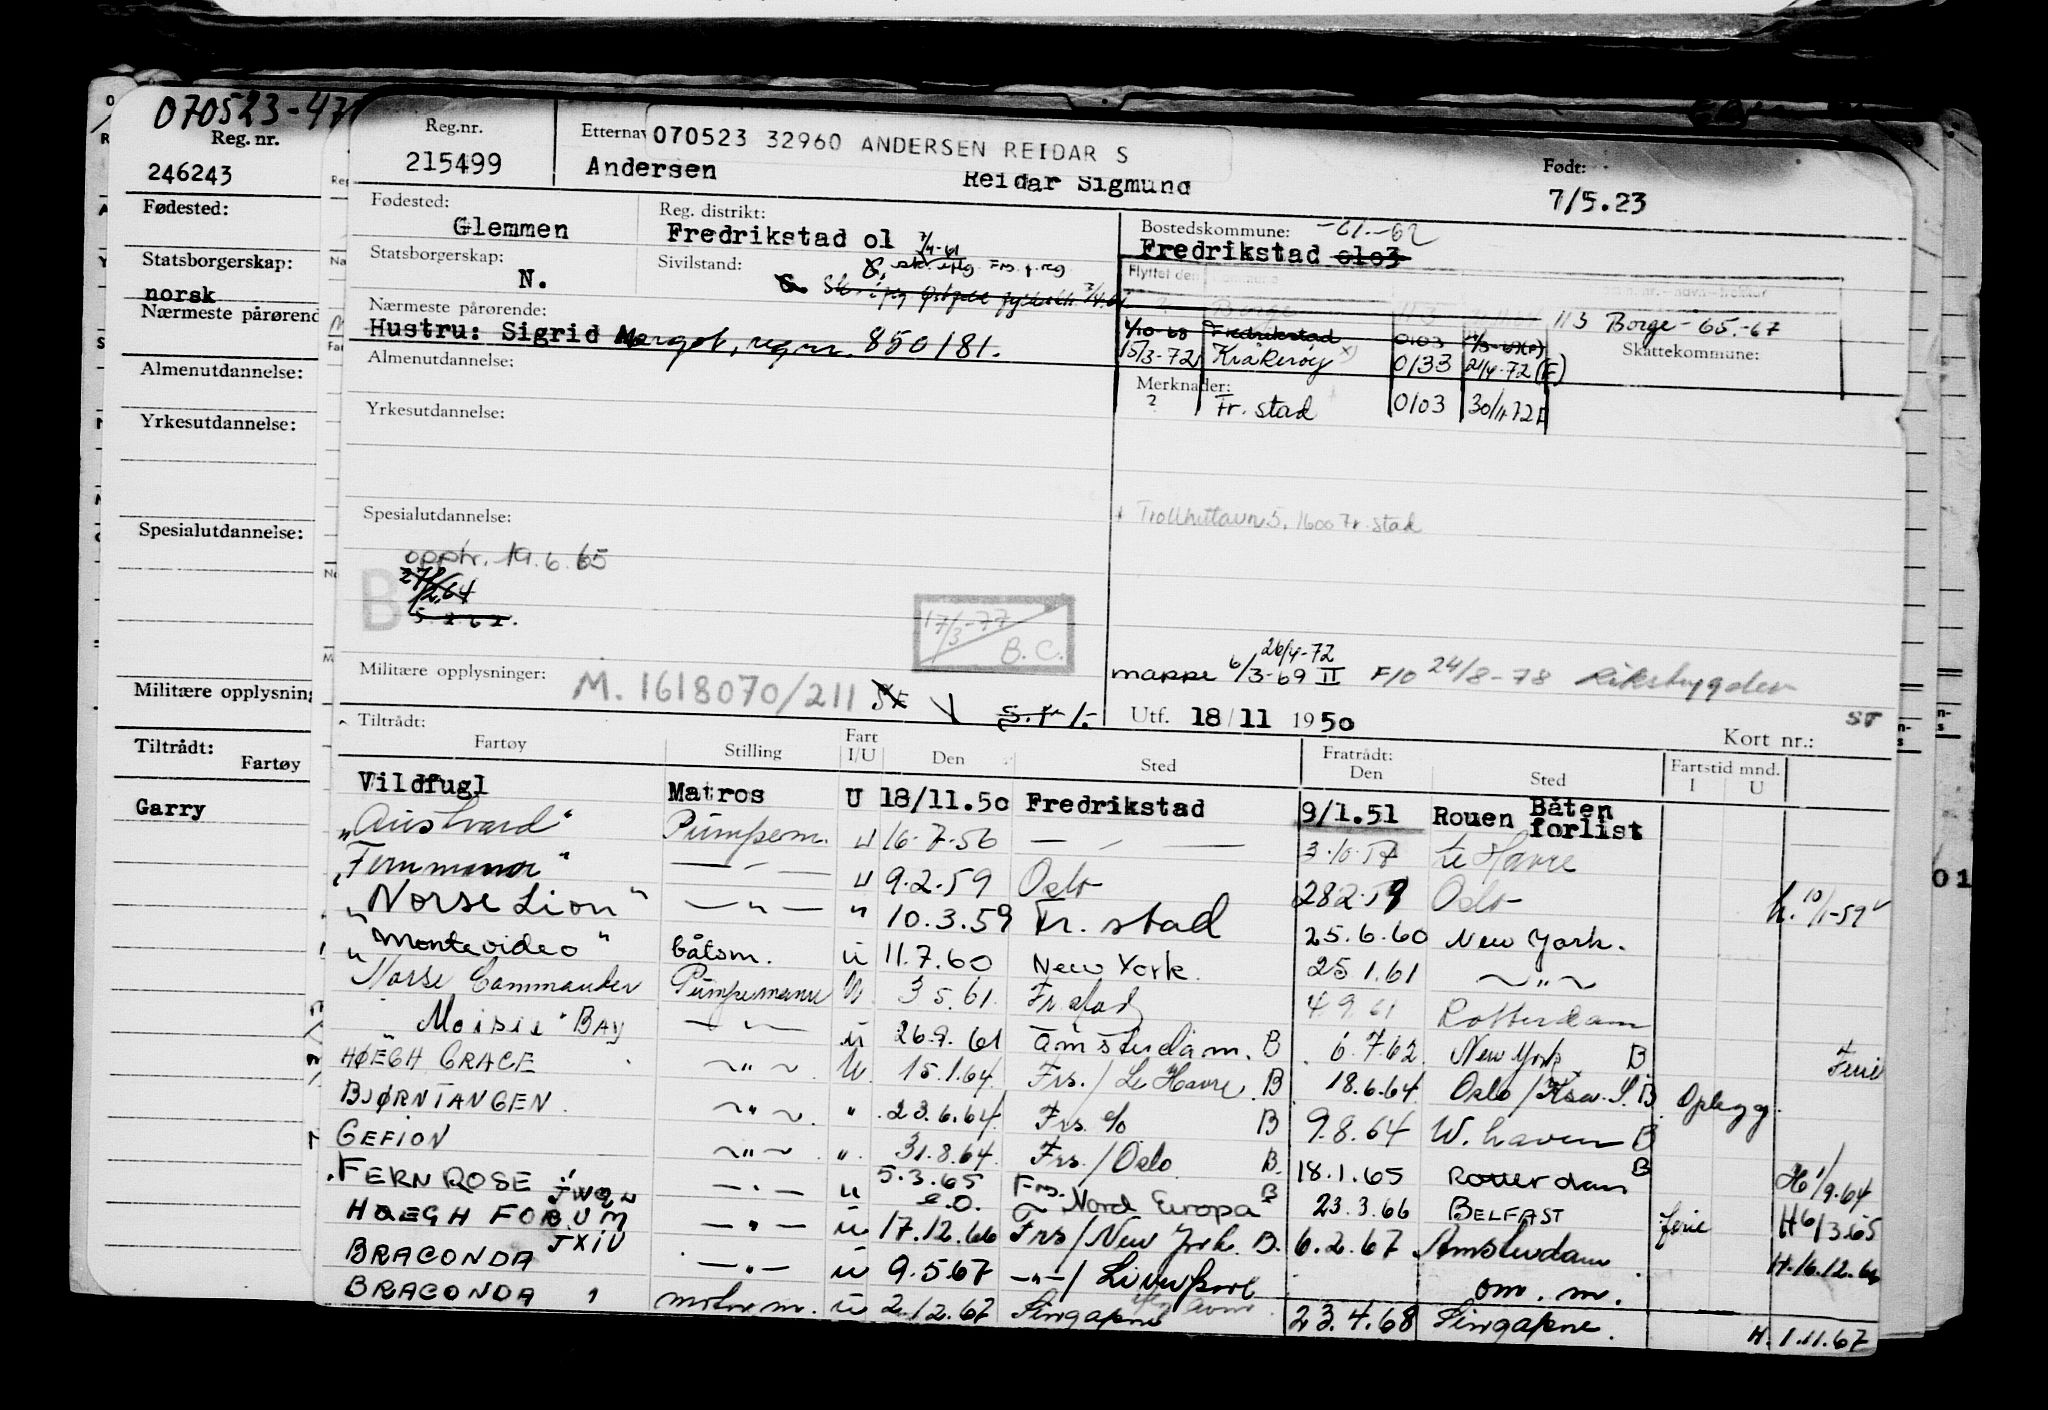 070523-47
Reg. nr.
246243
Fødested:
Statsborgerskap:
norsk
Nærmeste pårørend
Almenutdannelse:
Yrkesutdannelse:
Spesialutdannelse:
Militære opplysning
Tiltrådt:
Fartøy
Garry
Reg.nr.
215499
Etternav
070523 32960 ANDERSEN REIDAR S
Andersen Reidar Sigmund
Født:
7/5.23
Fødested:
Glemmen
Reg. distrikt:
Fredrikstad 01
7/4-61
Bostedskommune: -61.-62
Fredrikstad 0103
Statsborgerskap:
N.
Sivilstand:
Flyttet den
Borge 113
113 Borge - 65.-67
Nærmeste pårørende:
Hustru: Sigrid Margot, reg.nr. 850181.
1/10-68 Fredrikstad 0103
15/3-72 Kråkerøy x) 0133 21/4-72 (F)
Skattekommune:
Almenutdannelse:
Merknader:
? Fr. stad 0103 30/11-72 F
Yrkesutdannelse:
Spesialutdannelse:
Trollhettavn 5, 1600 Fr. stad
opptr. 19.6.65
27/2.64
5.2.62.
B
17/3-77
B.C.
Militære opplysninger:
M. 1618070/211
mappe 6/3-69 II 26/4-72 F/0 24/8-78 Riksbygden
Utf. 18/11 1950
ST
Kort nr.:
Tiltrådt:
Fartøy Stilling Fart I/U Den Sted Fratrådt: Den Sted Fartstid mnd. I U
Vildfugl Matros U 18/11.50 Fredrikstad 9/1.51 Rouen Båten forlist
"Austvard" Pumpem. u 16.7.56 — " — 3.10.57 Le Havre
"Fernmanor" — " — u 9.2.59 Oslo 28.2.59 Oslo
"Norse Lion" — " — " 10.3.59 Fr. stad 25.6.60 New York. h. 10/1-59
"Montevideo" båtsm. u 11.7.60 New York. 25.1.61 ~ " ~
Norse Commander Pumpemann U. 3.5.61. Fr.stad 4.9.61 Rotterdam
"Moisie" Bay — " — u 26.9.61 Amsterdam. B 6.7.62. New York B Ferie
HØEGH GRACE ~ " ~ U. 15.1.64. Frs./Le Havre. B 18.6.64. Oslo/Ksa. S. B Oplegg.
BJØRNTANGEN. ~ " ~ " 23.6.64. Frs. % B 9.8.64 W. haven B
GEFION ~ " ~ " 31.8.64. Frs./Oslo. B. 18.1.65 Rotterdam B H 1/9.64
FERNROSE JWQW — " — u 5.3.65 e.o. Frs. Nord Europa B 23.3.66 BELFAST ferie H 6/3.65
HØEGH FORUM JXIV — " — u 17.12.66 Frs/New York. B. 6.2.67 Amsterdam. H. 16.12.66
BRACONDA — " — u 9.5.67 — " —/Liverpool om. m.
BRACONDA motorm. u 2.12.67 Singapore 23.4.68 Singapore. H. 1.11.67
01